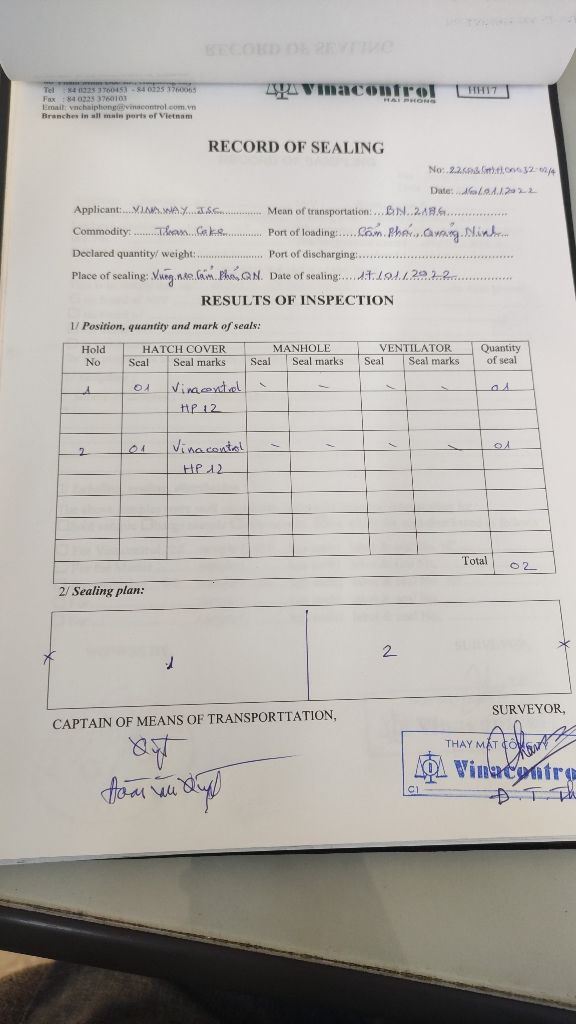 RECORD OF SEALING
Tel : 84 0225 3760453 - 84 0225 3760065
Fax : 84 0225 3760103
Email: vnchaiphong@vinacontrol.com.vn
Branches in all main ports of Vietnam
Vinacontrol
HAI PHONG
HH17
RECORD OF SEALING
No:
Date: 16/01/2022
Applicant: VINAWAY JSC Mean of transportation: BN 2186
Commodity: Than Coke Port of loading: Cẩm Phả, Quảng Ninh
Declared quantity/ weight: Port of discharging:
Place of sealing: Vũng neo Cẩm Phả, QN Date of sealing: 17/01/2022
RESULTS OF INSPECTION
1/ Position, quantity and mark of seals:
Hold No HATCH COVER MANHOLE VENTILATOR Quantity of seal
Seal Seal marks Seal Seal marks Seal Seal marks
1 01 Vinacontrol - - - - 01
HP 12
2 01 Vinacontrol - - - - 01
HP 12
Total 02
2/ Sealing plan:
x 1 2 x
CAPTAIN OF MEANS OF TRANSPORTTATION, SURVEYOR,
THAY MẶT CÔNG TY
Vinacontro
C1
D. T. Th